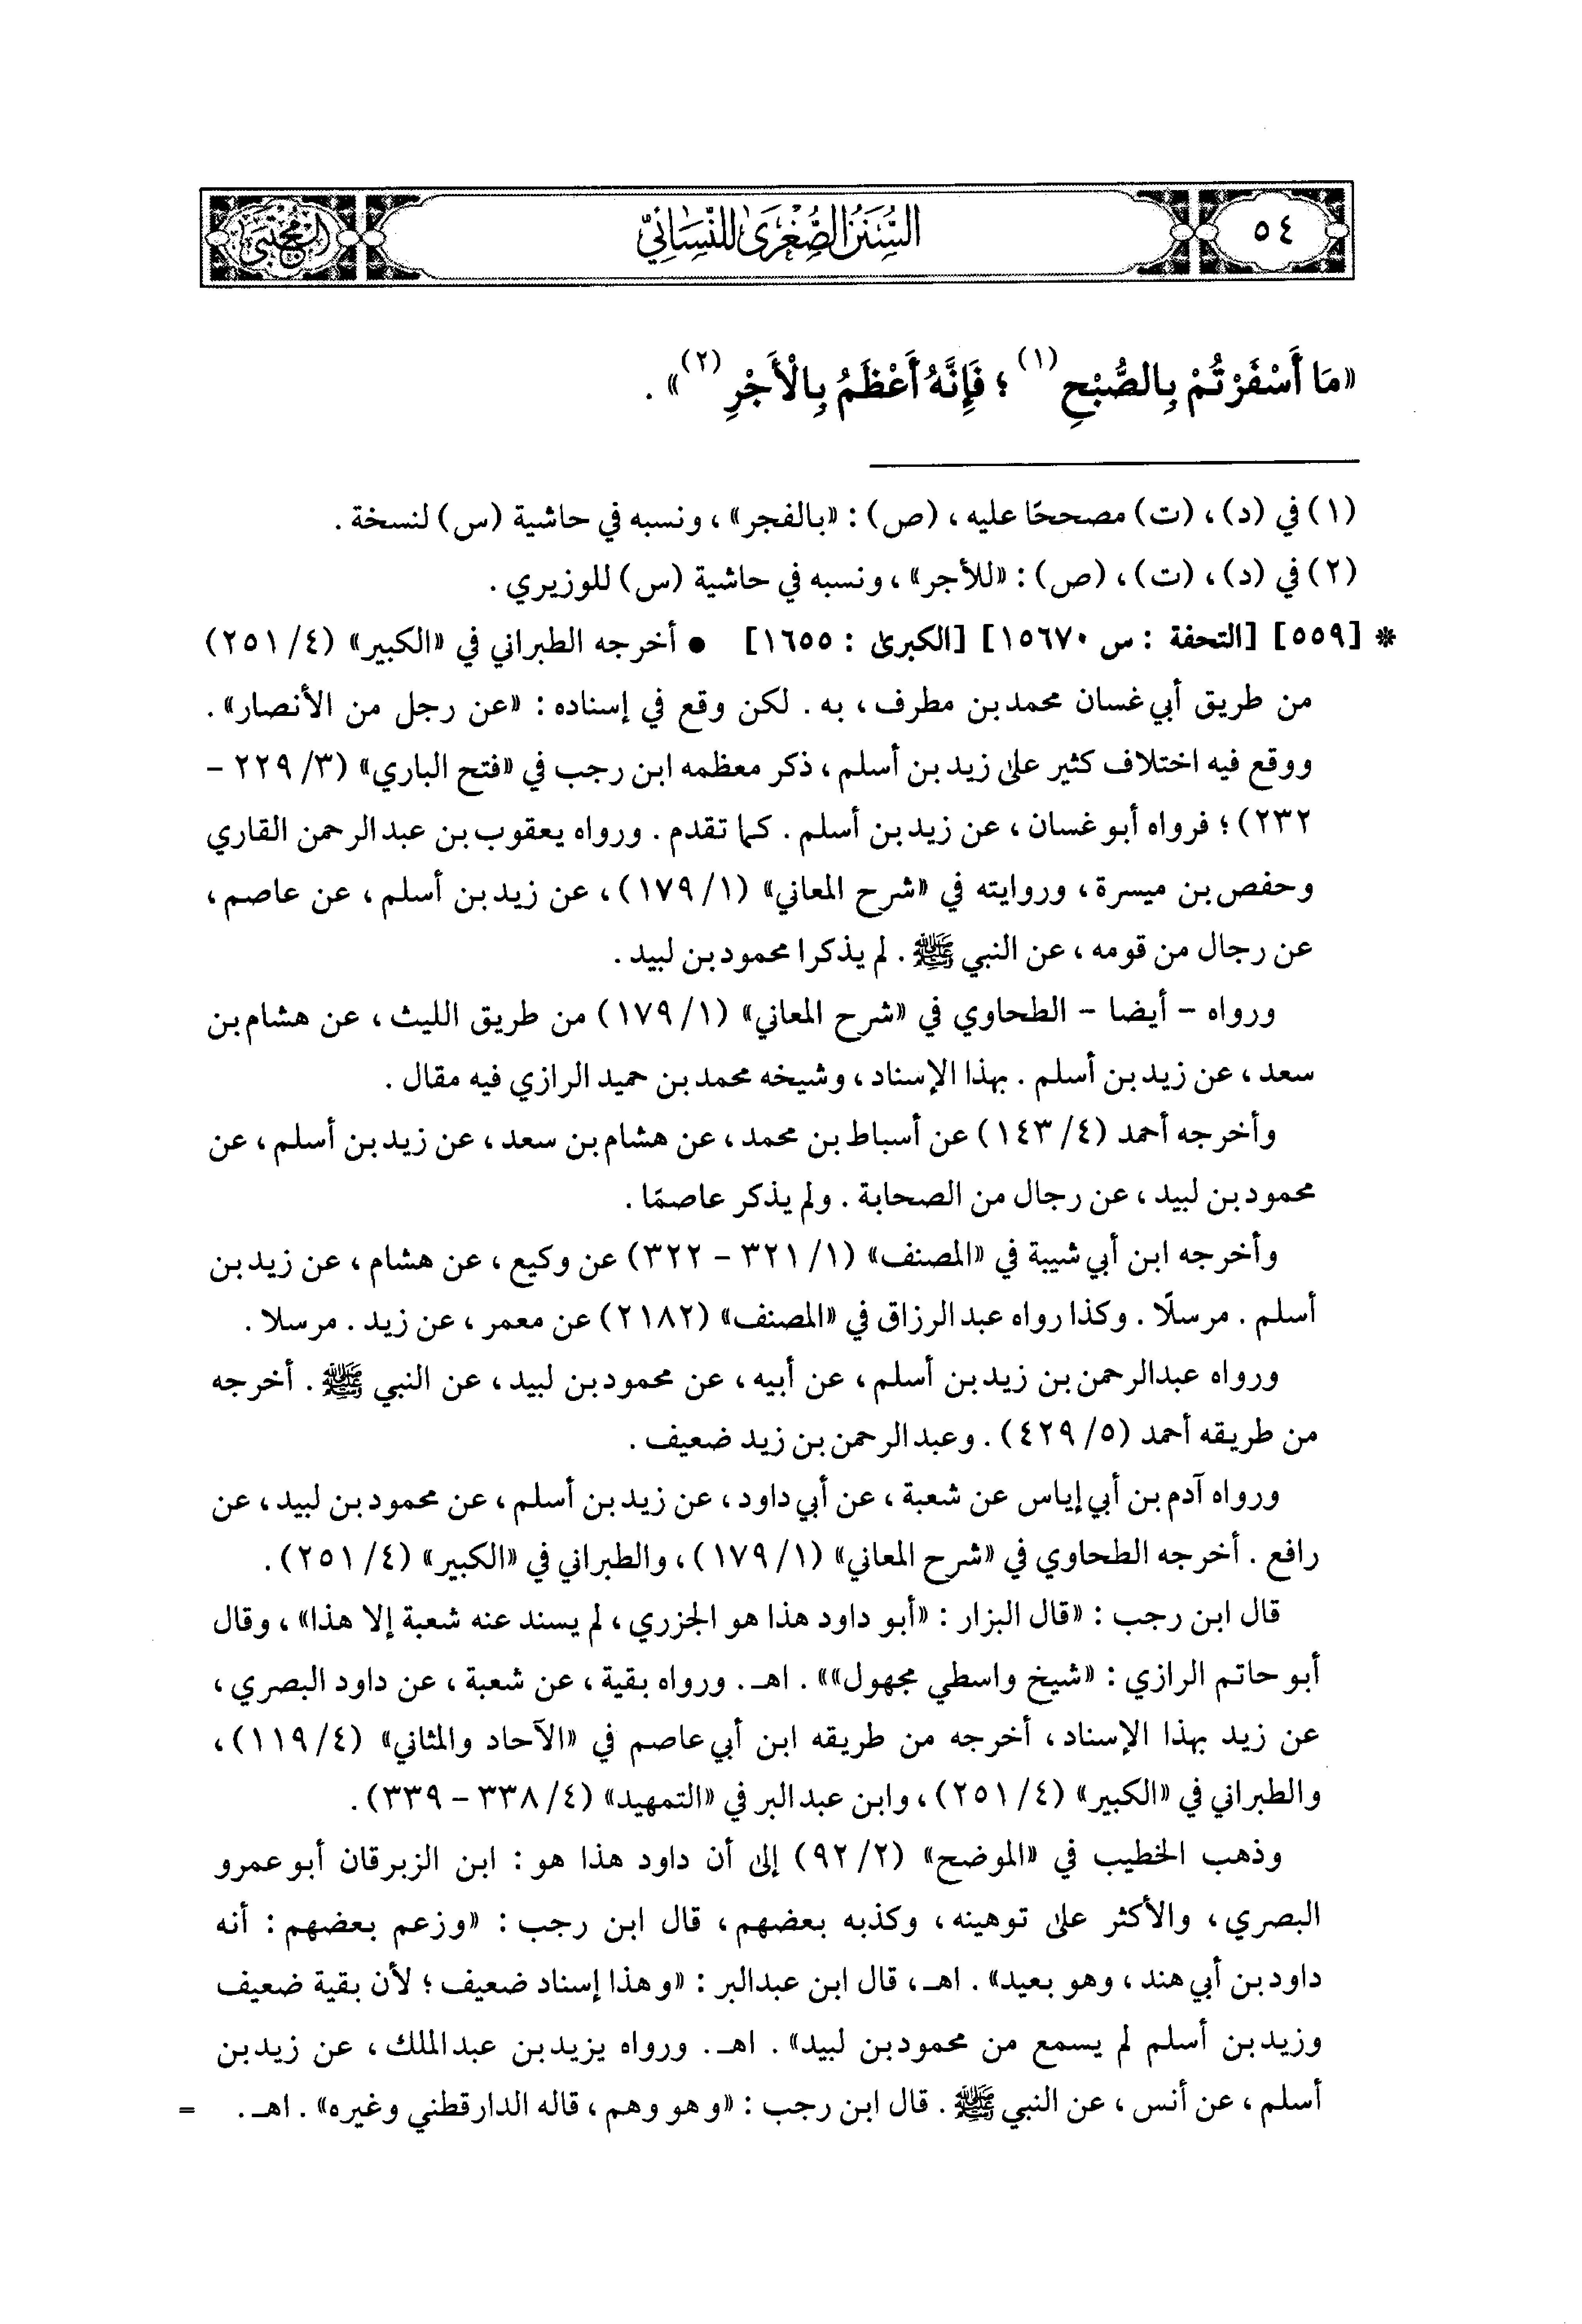 ٥٤
السُّنَنُ الصُّغْرَىٰ لِلنَّسَائِيِّ
المجتبى
«مَا أَسْفَرْتُمْ بِالصُّبْحِ(١)؛ فَإِنَّهُ أَعْظَمُ بِالْأَجْرِ(٢)».
(١) في (د)، (ت) مصححًا عليه، (ص): «بالفجر»، ونسبه في حاشية (س) لنسخة.
(٢) في (د)، (ت)، (ص): «للأجر»، ونسبه في حاشية (س) للوزيري.
* [٥٥٩] [التحفة: س ١٥٦٧٠] [الكبرىٰ: ١٦٥٥] • أخرجه الطبراني في «الكبير» (٤/ ٢٥١)
من طريق أبي غسان محمد بن مطرف، به. لكن وقع في إسناده: «عن رجل من الأنصار».
ووقع فيه اختلاف كثير علىٰ زيد بن أسلم، ذكر معظمه ابن رجب في «فتح الباري» (٣/ ٢٢٩ -
٢٣٢)؛ فرواه أبو غسان، عن زيد بن أسلم. كما تقدم. ورواه يعقوب بن عبد الرحمن القاري
وحفص بن ميسرة، وروايته في «شرح المعاني» (١/ ١٧٩)، عن زيد بن أسلم، عن عاصم،
عن رجال من قومه، عن النبي ﷺ. لم يذكرا محمود بن لبيد.
ورواه - أيضا - الطحاوي في «شرح المعاني» (١/ ١٧٩) من طريق الليث، عن هشام بن
سعد، عن زيد بن أسلم. بهذا الإسناد، وشيخه محمد بن حميد الرازي فيه مقال.
وأخرجه أحمد (٤/ ١٤٣) عن أسباط بن محمد، عن هشام بن سعد، عن زيد بن أسلم، عن
محمود بن لبيد، عن رجال من الصحابة. ولم يذكر عاصمًا.
وأخرجه ابن أبي شيبة في «المصنف» (١/ ٣٢١ - ٣٢٢) عن وكيع، عن هشام، عن زيد بن
أسلم. مرسلًا. وكذا رواه عبد الرزاق في «المصنف» (٢١٨٢) عن معمر، عن زيد. مرسلا.
ورواه عبدالرحمن بن زيد بن أسلم، عن أبيه، عن محمود بن لبيد، عن النبي ﷺ. أخرجه
من طريقه أحمد (٥/ ٤٢٩). وعبد الرحمن بن زيد ضعيف.
ورواه آدم بن أبي إياس عن شعبة، عن أبي داود، عن زيد بن أسلم، عن محمود بن لبيد، عن
رافع. أخرجه الطحاوي في «شرح المعاني» (١/ ١٧٩)، والطبراني في «الكبير» (٤/ ٢٥١).
قال ابن رجب: «قال البزار: «أبو داود هذا هو الجزري، لم يسند عنه شعبة إلا هذا»، وقال
أبو حاتم الرازي: «شيخ واسطي مجهول»». اهـ. ورواه بقية، عن شعبة، عن داود البصري،
عن زيد بهذا الإسناد، أخرجه من طريقه ابن أبي عاصم في «الآحاد والمثاني» (٤/ ١١٩)،
والطبراني في «الكبير» (٤/ ٢٥١)، وابن عبد البر في «التمهيد» (٤/ ٣٣٨ - ٣٣٩).
وذهب الخطيب في «الموضح» (٢/ ٩٢) إلىٰ أن داود هذا هو: ابن الزبرقان أبو عمرو
البصري، والأكثر علىٰ توهينه، وكذبه بعضهم، قال ابن رجب: «وزعم بعضهم: أنه
داود بن أبي هند، وهو بعيد». اهـ، قال ابن عبدالبر: «وهذا إسناد ضعيف؛ لأن بقية ضعيف
وزيد بن أسلم لم يسمع من محمود بن لبيد». اهـ. ورواه يزيد بن عبد الملك، عن زيد بن
أسلم، عن أنس، عن النبي ﷺ. قال ابن رجب: «وهو وهم، قاله الدارقطني وغيره». اهـ. =